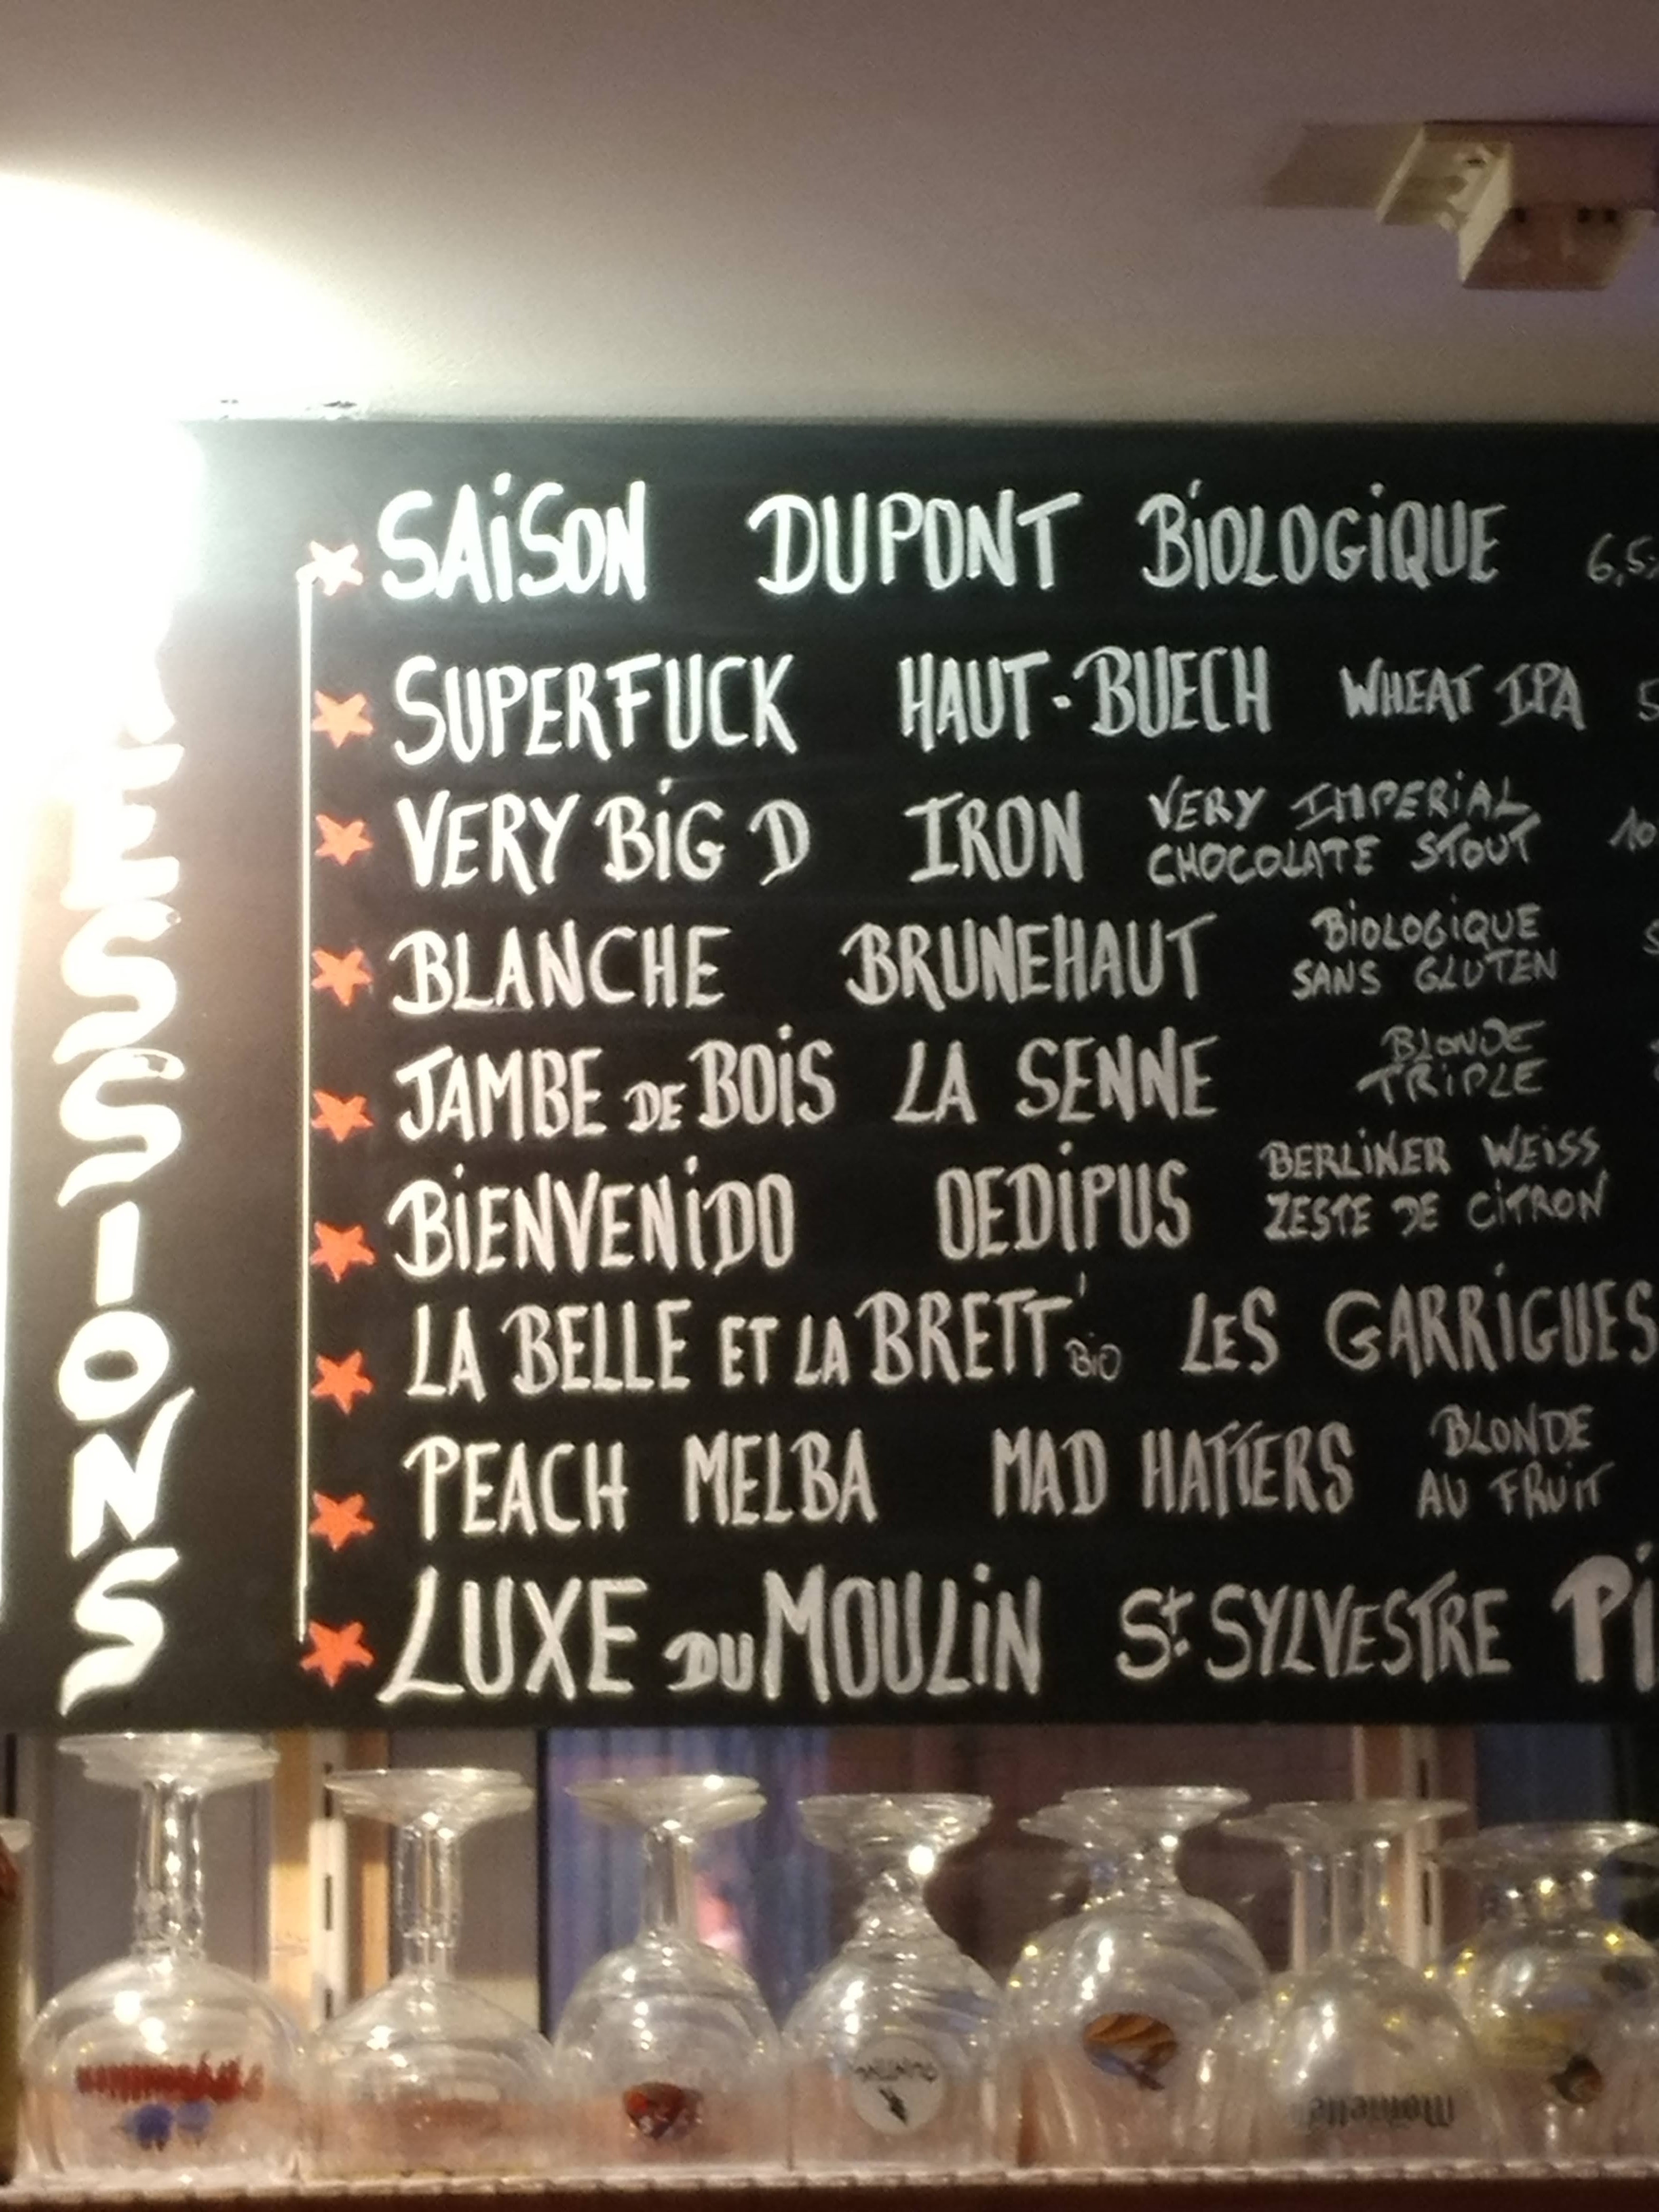 ESSIONS
SAISON DUPONT BIOLOGIQUE 6,5
SUPERFUCK HAUT-BUECH WHEAT IPA 5
VERY BIG D IRON VERY IMPERIAL
CHOCOLATE STOUT 10
BLANCHE BRUNEHAUT BIOLOGIQUE
SANS GLUTEN
JAMBE DE BOIS LA SENNE BLONDE
TRIPLE
BIENVENIDO OEDIPUS BERLINER WEISS
ZESTE DE CITRON
LA BELLE ET LA BRETT' BIO LES GARRIGUES
PEACH MELBA MAD HATTERS BLONDE
AU FRUIT
LUXE DU MOULIN St. SYLVESTRE Pi